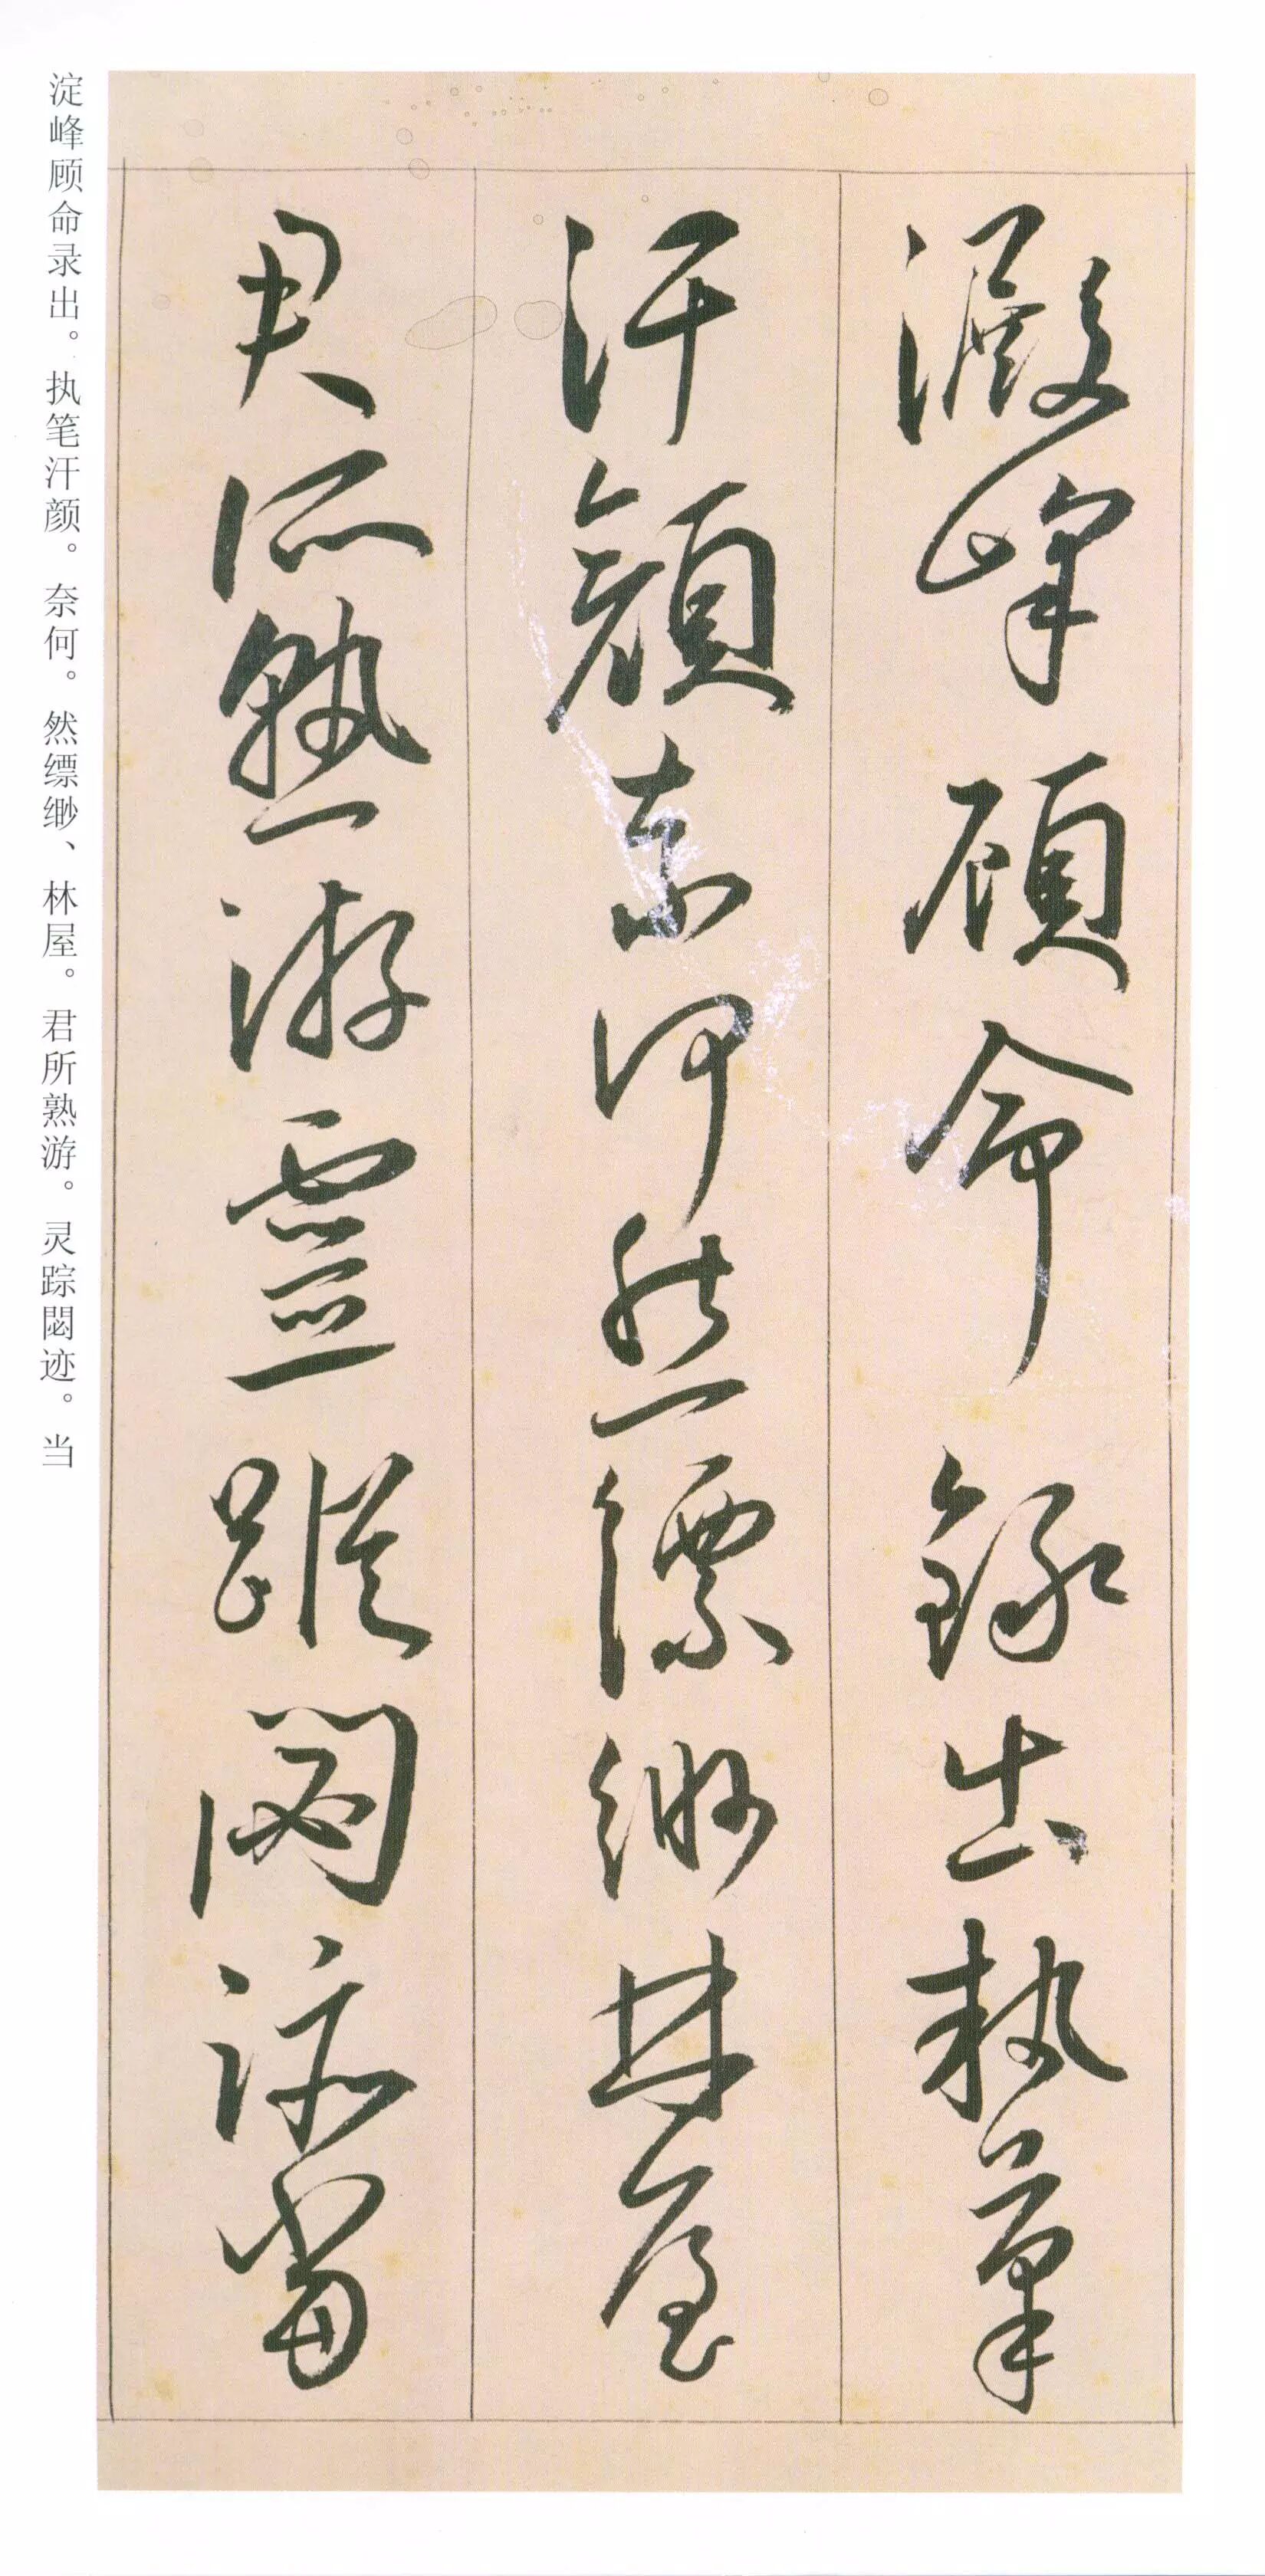 澱峰顾命録出執筆
汗顔柰何然縹緲林屋
君所熟游靈蹤閟迹當
淀峰顾命录出。执笔汗颜。奈何。然缥缈、林屋。君所熟游。灵踪閟迹。当